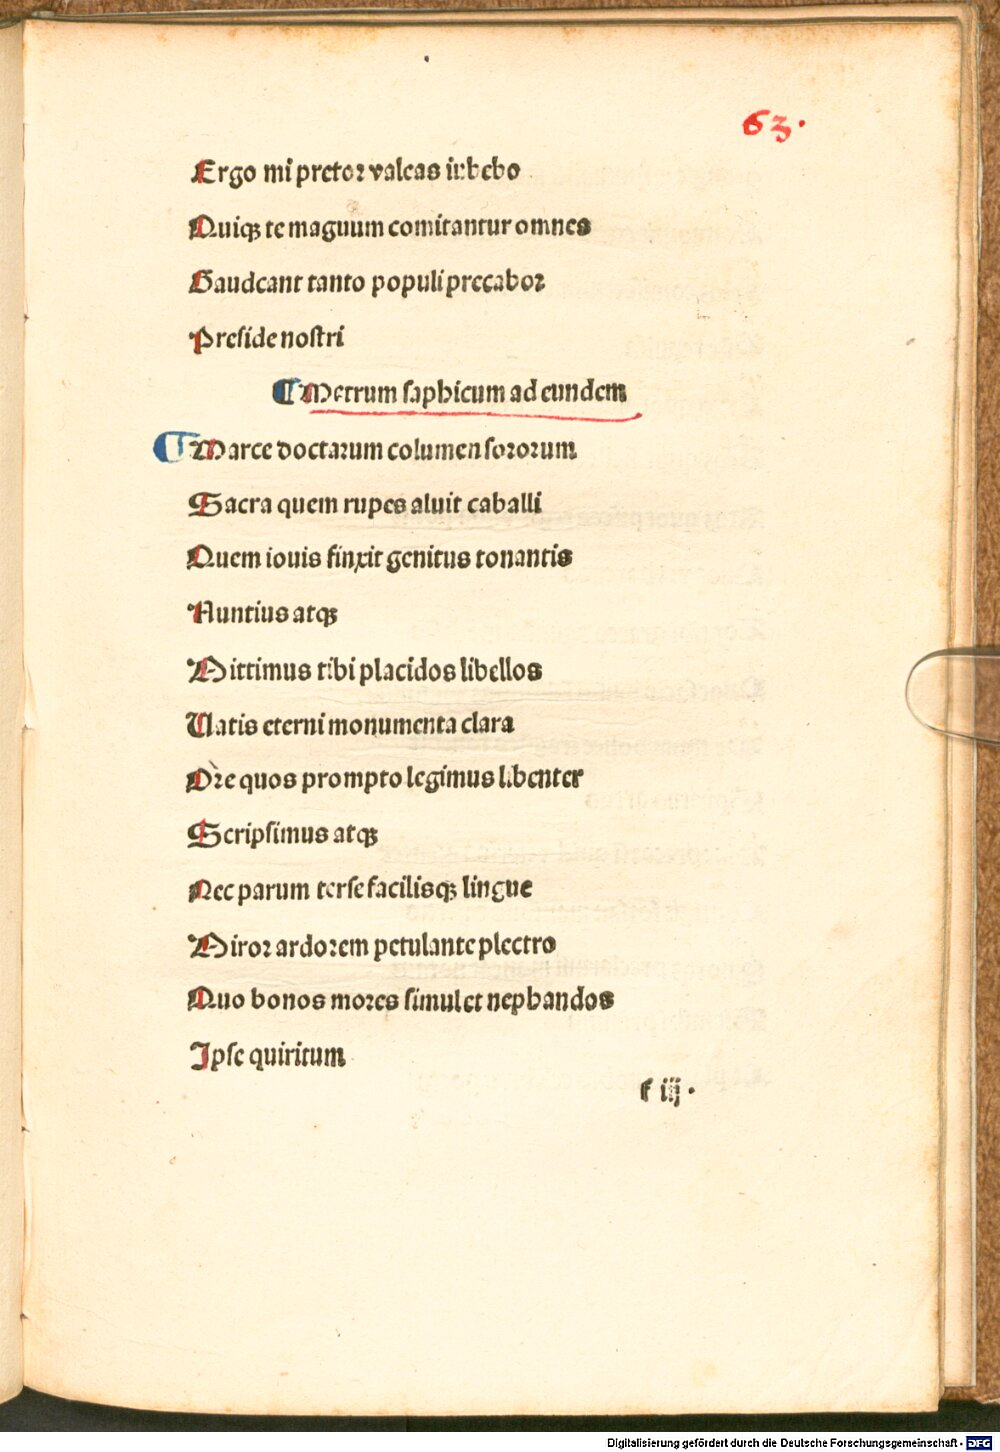 63.
Ergo mi pretor valeas iubebo
Quiqꝫ te maguum comitantur omnes
Gaudeant tanto populi precabor
Preside nostri
¶ Metrum saphicum ad eundem
¶ Marce doctarum columen sororum
Sacra quem rupes aluit caballi
Quem iouis finxit genitus tonantis
Nuntius atqꝫ
Mittimus tibi placidos libellos
Vatis eterni monumenta clara
Ore quos prompto legimus libenter
Scripsimus atqꝫ
Nec parum terse facilisqꝫ lingue
Miror ardorem petulante plectro
Quo bonos mores simul et nephandos
Ipse quiritum
f iij.
Digitalisierung gefördert durch die Deutsche Forschungsgemeinschaft - DFG